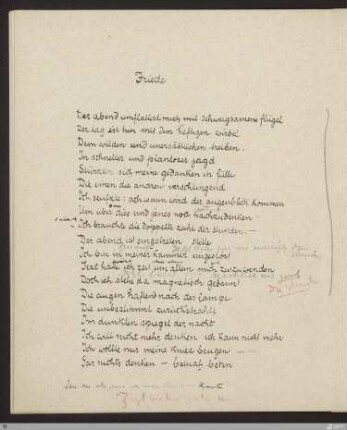 Friede
Der abend umflattert mich mit schweigsamem flügel
Der tag ist hin mit dem heftigen wirbel
Dem wilden und unersättlichen treiben.
In schneller und planloser jagd
Stürzen sich meine gedanken in fülle
Die einen die andren verschlingend
Ich seufze: ach wann wird der augenblick kommen
Um über dies und jenes noch nachzudenken.
Ich brauchte die doppelte zahl der stunden.
Der abend ist eingetreten stille
Ich bin in meiner kammer ungestört
Jezt habe ich zeit um allem mich zuzuwenden
Doch ich stehe da magnetisch gebannt
Die augen haftend nach der lampe
Die unbestimmt zurückstrahlt
Im dunklen spiegel der nacht
Ich will nicht mehr denken ich kann nicht mehr
Ich wollte nur meine kniee beugen
Gar nichts denken – beinah beten